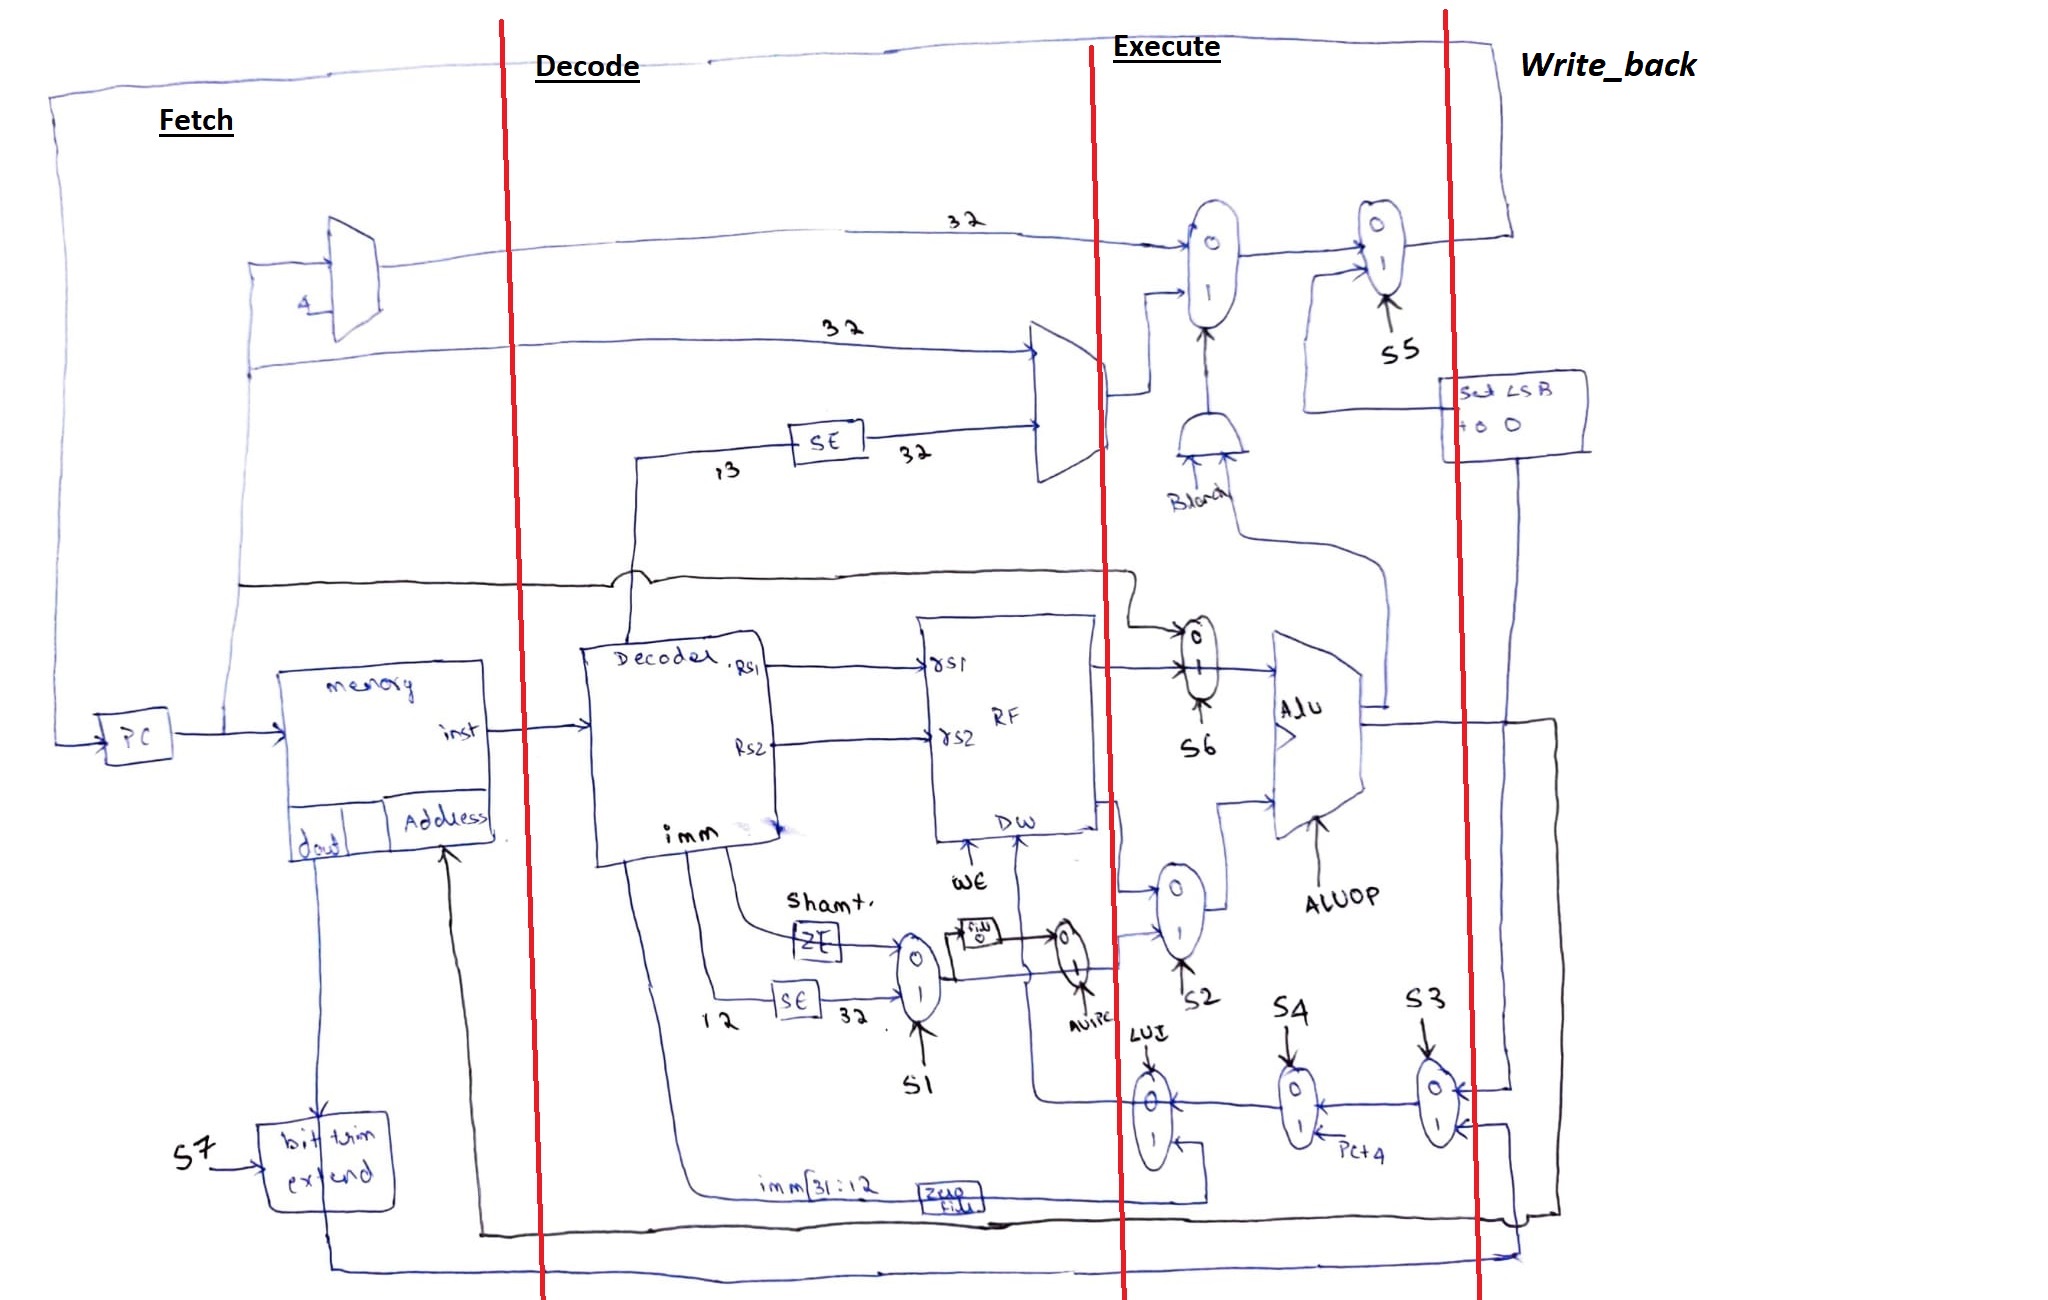 Fetch
Decode
Execute
Write_back
32
0
1
0
1
S5
4
32
SE
13
32
Set LSB
to 0
Branch
memory
inst
dout
Address
PC
Decoder
Rs1
Rs2
imm
rs1
rs2
RF
DW
WE
0
1
S6
ALU
ALUOP
Shamt.
ZE
SE
12
32
0
1
S1
Fill
0
0
1
AUIPC
0
1
S2
LUI
0
1
S4
0
1
PC+4
S3
0
1
S7
bit trim
extend
imm[31:12
Zero
Fill